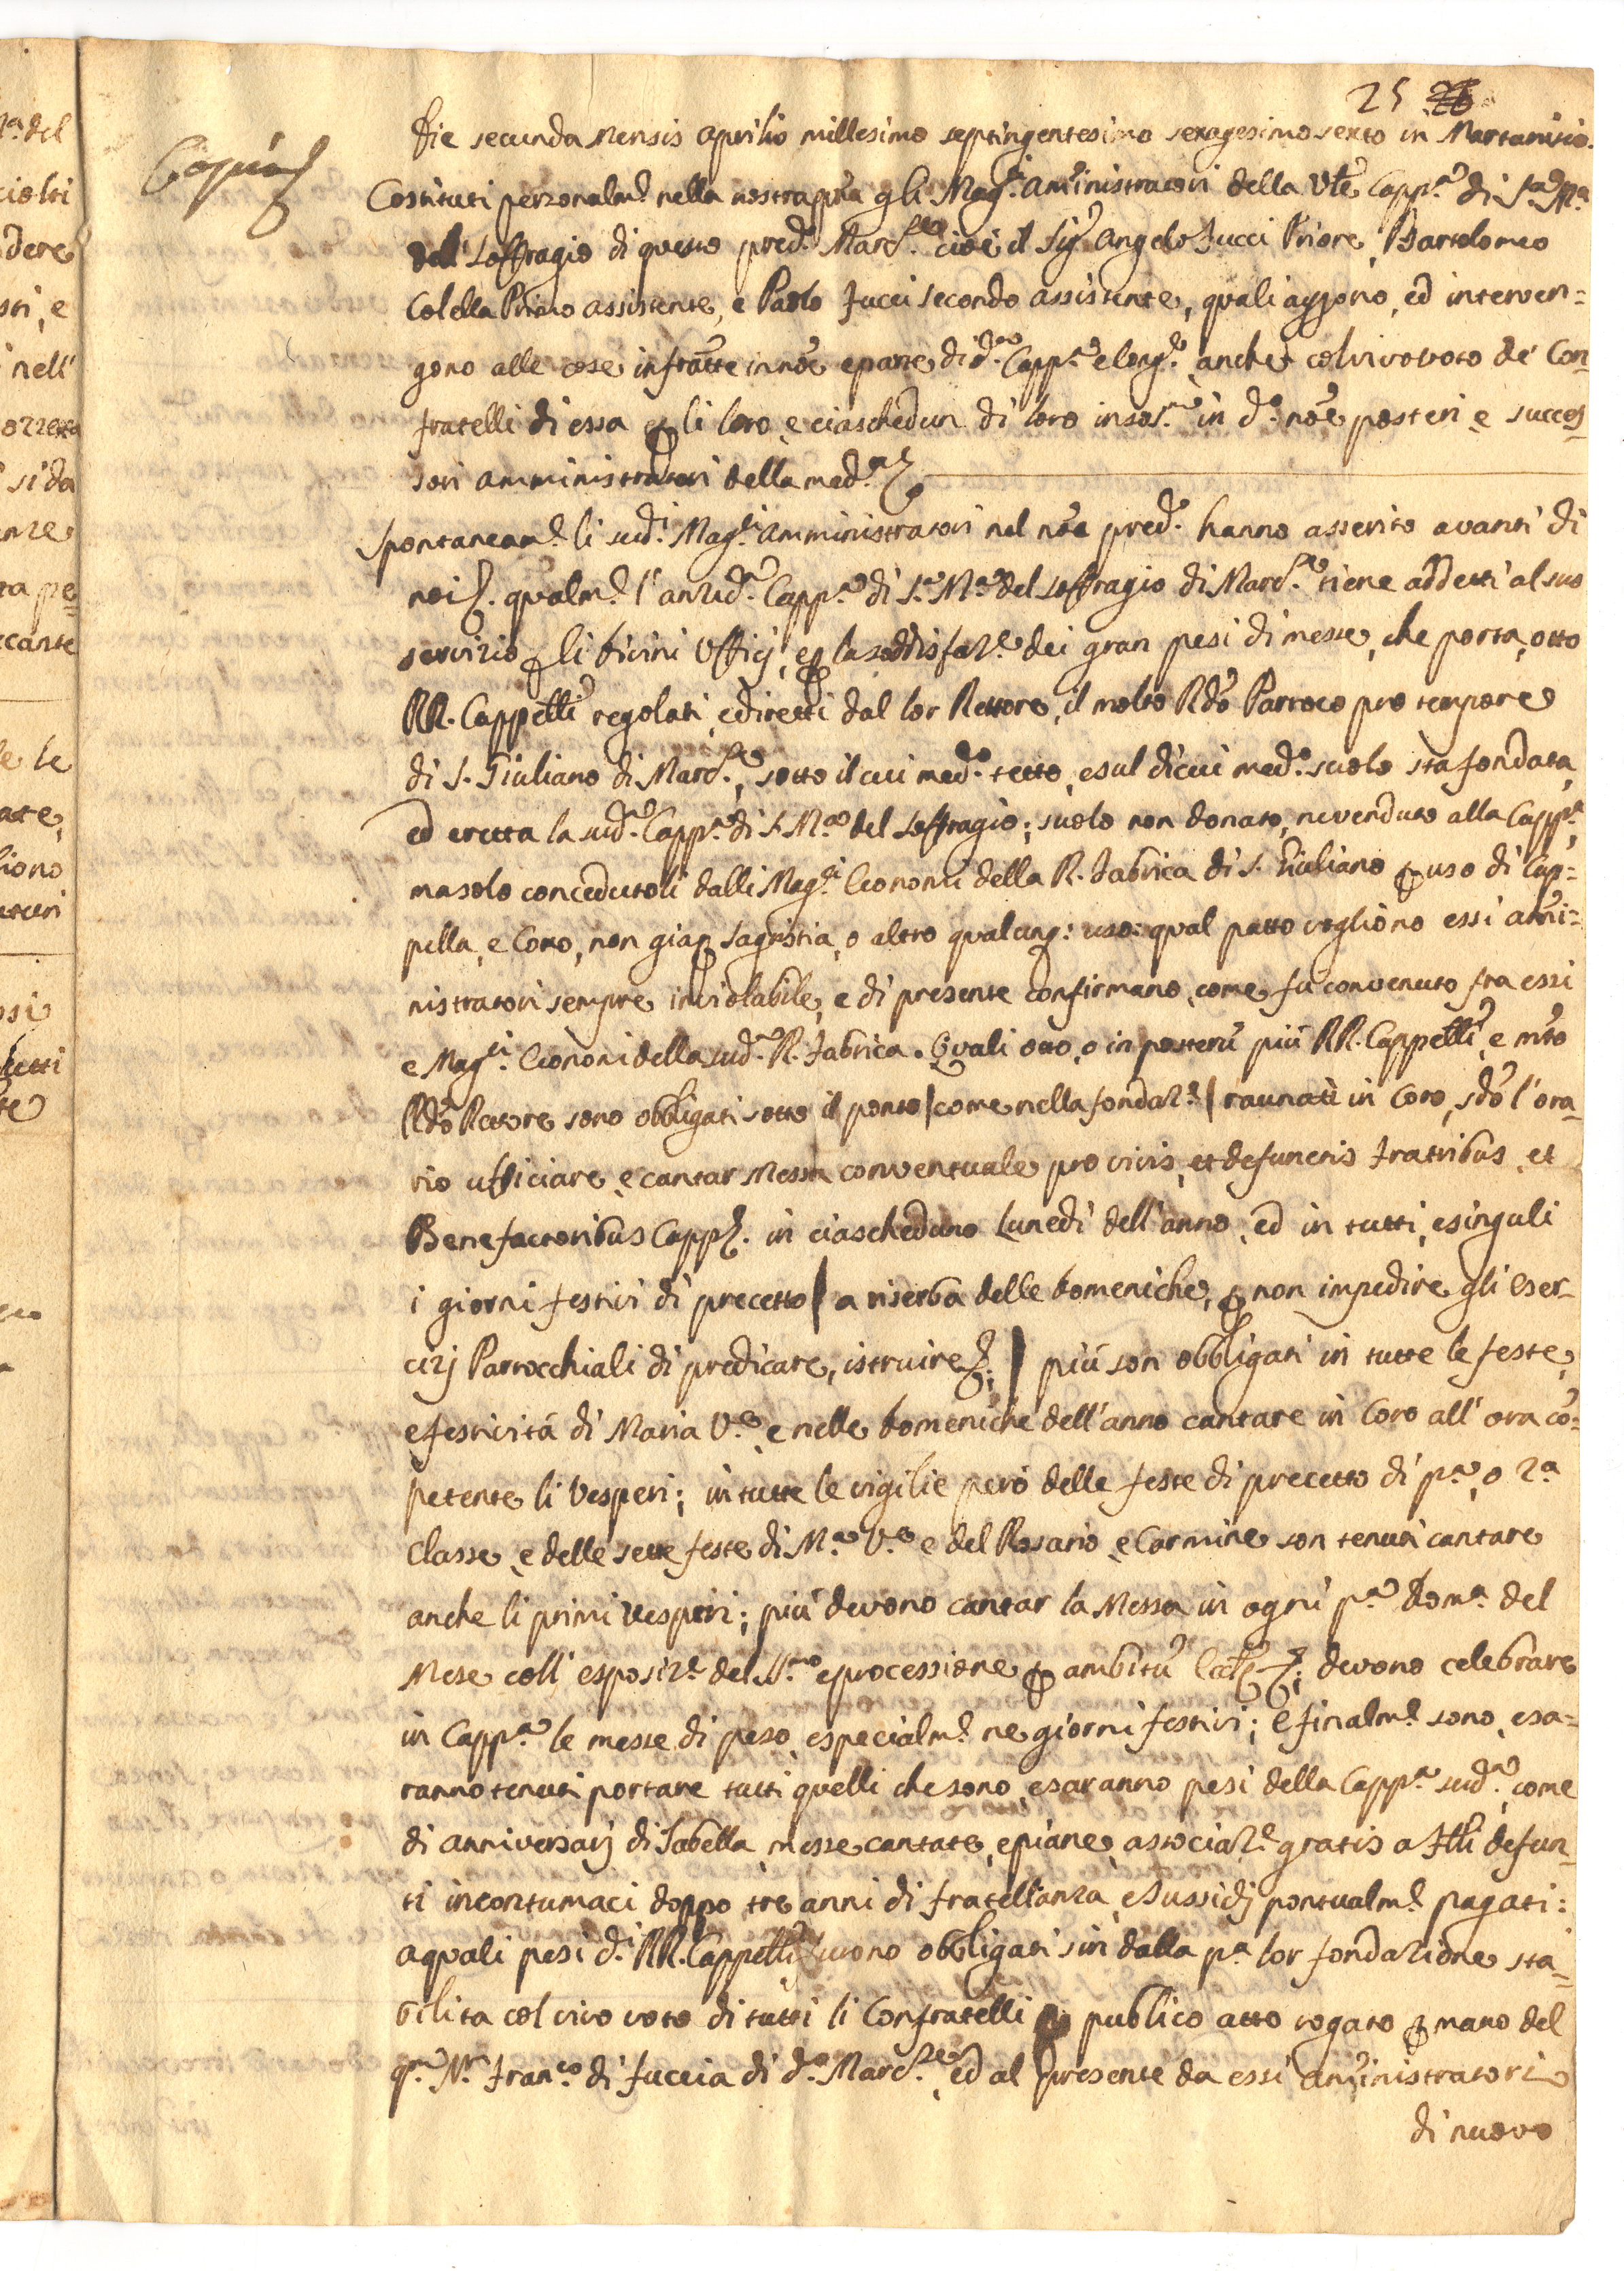 25 26
Copia
Die secunda Mensis Aprilis millesimo septingentesimo sexagesimo sexto in Martanisio.
Costituti personalm.e nella nostra pñza gli Mag.ci Am̃inistratori della Vĩe Capp.a di S.a M.a
del Soffragio di questo pred.o Marc.se cioè il Sig.r Angelo Iucci Priore, Bartolomeo
Colella Primo assistente, e Paolo Iucci secondo assistente, quali aggono, ed interven=
gono alle cose infratte in nõe e parte di d.a Capp.a e Cong.e anche col vivo voto de' Con=
fratelli di essa per li loro, e ciaschedun di loro in sol.m in d.o nõe posteri e succes=
sori amministratori della med.a
Spontaneam.e li sud.i Mag.ci amministratori nel nõe pred.o hanno asserito avanti di
noi. qualm.e l'anzid.a Capp.a di S.a M.a del Soffragio di Marc.se tiene addetti al suo
servizio per li Divini Ufficj, e per la soddisfaz.e dei gran pesi di messe, che porta, otto
RR. Cappell̃i regolati, e diretti dal lor Rettore, il molto Rdo Parroco pro tempore
di S. Giuliano di Marc.se, sotto il cui med.o tetto, e sul di cui med.o suolo sta fondata,
ed eretta la sud.a Capp.a di S. M.a del Soffragio; suolo non donato, ne venduto alla Capp.a,
ma solo concedutoli dalli Mag.ci Economi della R. Fabrica di S. Giuliano per uso di Cap=
pella, e Coro, non gia per Sagristia, o altro qualunq: uso: qual patto vogliono essi am̃i=
nistratori sempre inviolabile, e di presente confirmano, come fu convenuto fra essi
e Mag.ci Economi della sud.a R. Fabrica. Quali otto, o in posterũ più RR. Cappell̃i, e m̃to
Rdo Rettore sono obbligati sotto il ponto | come nella fondaz.e | raunati in Coro, sdõ l'ora=
rio ufficiare, e cantar Messa conventuale pro vivis, et defunctis Fratribus, et
Benefactoribus Capp. in ciascheduno Lunedì dell'anno, ed in tutti, e singuli
i giorni festivi di precetto | a riserba delle Domeniche, per non impedire gli eser=
cizj Parrocchiali di predicare, istruire; | più son obbligati in tutte le feste,
e festività di Maria V.e, e nelle Domeniche dell'anno cantare in Coro all'ora cõ=
petente li Vesperi; in tutte le vigilie però delle feste di precetto di p.a, o 2.a
classe, e delle sette feste di M.a V.e e del Rosario, e Carmine son tenuti cantare
anche li primi Vesperi; più devono cantar la Messa in ogni p.a Dom.a del
Mese coll'esposiz.e del SS.mo e processione per ambitũ devono celebrare
in Capp.a le messe di peso, e specialm.e ne giorni festivi; e finalm.e sono, e sa=
ranno tenuti portare tutti quelli che sono, e saranno pesi della Capp.a sud.a, come
di anniversarj di Tabella, messe cantate, e piane, associaz.e gratis a Flli defun=
ti incontumaci doppo tre anni di fratellanza, e sussidj pontualm.e pagati:
a quali pesi d.i RR. Cappell̃i furono obbligati sin dalla p.a lor fondazione sta=
bilita col vivo voto di tutti li Confratelli publico atto rogato per mano del
q.m N.r Fran.co di Fuccia di d.o Marc.se, ed al presente da essi am̃inistratori
di nuovo